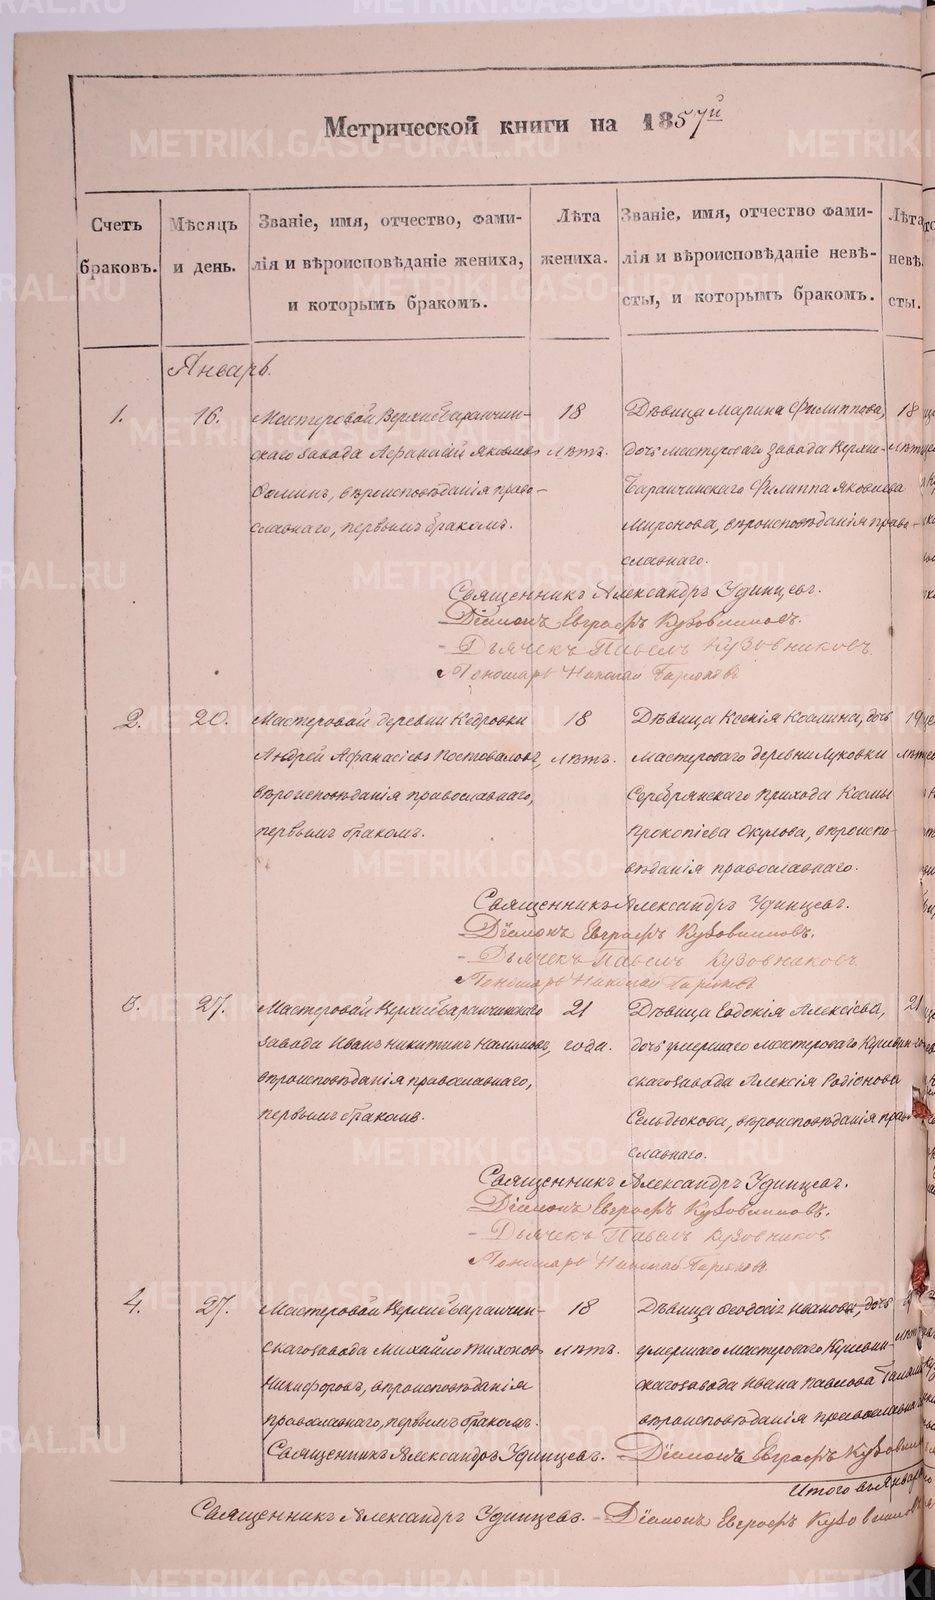 Метрической книги на 1857й
Счетъ браковъ.
Мѣсяцъ и день.
Званіе, имя, отчество, фами-
лія и вѣроисповѣданіе жениха,
и которымъ бракомъ.
Лѣта
жениха.
Званіе, имя, отчество фами-
лія и вѣроисповѣданіе невѣ-
сты, и которымъ бракомъ.
Лѣта
невѣ-
сты.
Январь.
1.
16.
Мастеровой Верхнебаранчин-
скаго завода Афанасій Яковлевъ
Фоминъ, вѣроисповѣданія право-
славнаго, первымъ бракомъ.
18
лѣтъ.
Дѣвица Марина Филиппова,
дочь мастероваго завода Верхне-
Баранчинскаго Филиппа Яковлева
Миронова, вѣроисповѣданія право-
славнаго.
18
лѣтъ
Священникъ Александръ Удинцевъ.
Діаконъ Евграфъ
- Дьячекъ Павелъ Кузовниковъ.
Пономарь Николай
2.
20.
Мастеровой деревни Кедровки
Андрей Афанасіевъ Костоваловъ,
вѣроисповѣданія православнаго,
первымъ бракомъ.
18
лѣтъ.
Дѣвица Ксенія Козмина, дочь
мастероваго деревни Луковки
Серебрянскаго прихода Козмы
Прокопіева Окулова, вѣроиспо-
вѣданія православнаго.
19
лѣтъ
Священникъ Александръ Удинцевъ.
Діаконъ Евграфъ
- Дьячекъ Павелъ Кузовниковъ.
Пономарь Николай
3.
27.
Мастеровой Верхнебаранчинскаго
завода Иванъ Никитинъ
вѣроисповѣданія православнаго,
первымъ бракомъ.
21
года.
Дѣвица Евдокія Алексіева,
дочь умершаго мастероваго Кушвин-
скаго завода Алексія Родіонова
Сельдюкова, вѣроисповѣданія право-
славнаго.
21
Священникъ Александръ Удинцевъ.
Діаконъ Евграфъ
- Дьячекъ Павелъ Кузовниковъ
Пономарь Николай
4.
27.
Мастеровой Верхнебаранчин-
скаго завода Михайло Тихоновъ
Никифоровъ, вѣроисповѣданія
православнаго, первымъ бракомъ.
18
лѣтъ.
Дѣвица Ивановна, дочь
умершаго мастероваго Кушвин-
скаго завода Ивана Павлова
вѣроисповѣданія православна
лѣтъ
Священникъ Александръ Удинцевъ. - Діаконъ Евграфъ
Итого въ Январѣ
Священникъ Александръ Удинцевъ. - Діаконъ Евграфъ
METRIKI.GASO-URAL.RU